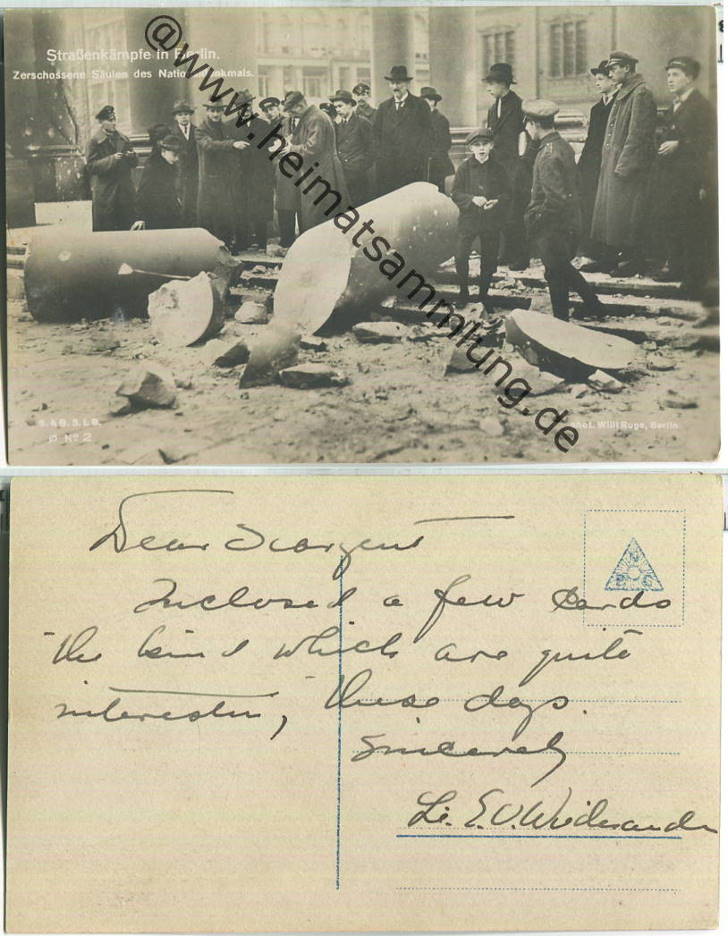 Straßenkämpfe in Berlin.
Zerschossene Säulen des Nationaldenkmals.
@www.heimatsammlung.de
S. & G. S. i. B.
Nº 2
phot. Willi Ruge, Berlin
Dear Seargent
Inclosed a few Cards
the kind which are quite
interestin, these days.
Sincerely
Lt. E. V.